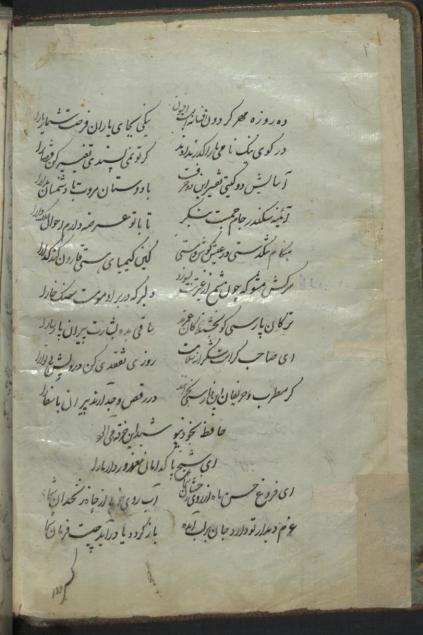 ده روزه مهر گردون افسانه است افسون نیکی بجای یاران فرصت شمار یارا
در کوی نیک نامی ما را گذر ندادند گر تو نمی پسندی تغییر کن قضا را
آسایش دو گیتی تفسیر این دو حرفست با دوستان مروت با دشمنان مدارا
آئینه سکندر جام جمست بنگر تا با تو عرضه دارم احوال ملک دارا
هنگام تنگدستی در عیش کوش و مستی کین کیمیای هستی قارون کند گدا را
سرکش مشو که چون شمع از غیرتت بسوزد دلبر که در بر او مومست سنگ خارا
ترکان پارسی گو بخشندگان عمرند ساقی بده بشارت پیران پارسا را
ای صاحب کرامت شکرانه سلامت روزی تفقدی کن درویش بی نوا را
گر مطرب حریفان این پارسی بخواند در رقص و حالت آرد پیران پارسا را
حافظ بخود نپوشید این خرقه می آلود
ای شیخ پاکدامن معذور دار ما را
ای فروغ حسن ماه از روی رخشان شما آب روی خوبی از چاه زنخدان شما
عزم دیدار تو دارد جان بر لب آمده باز گردد یا در آید چیست فرمان شما